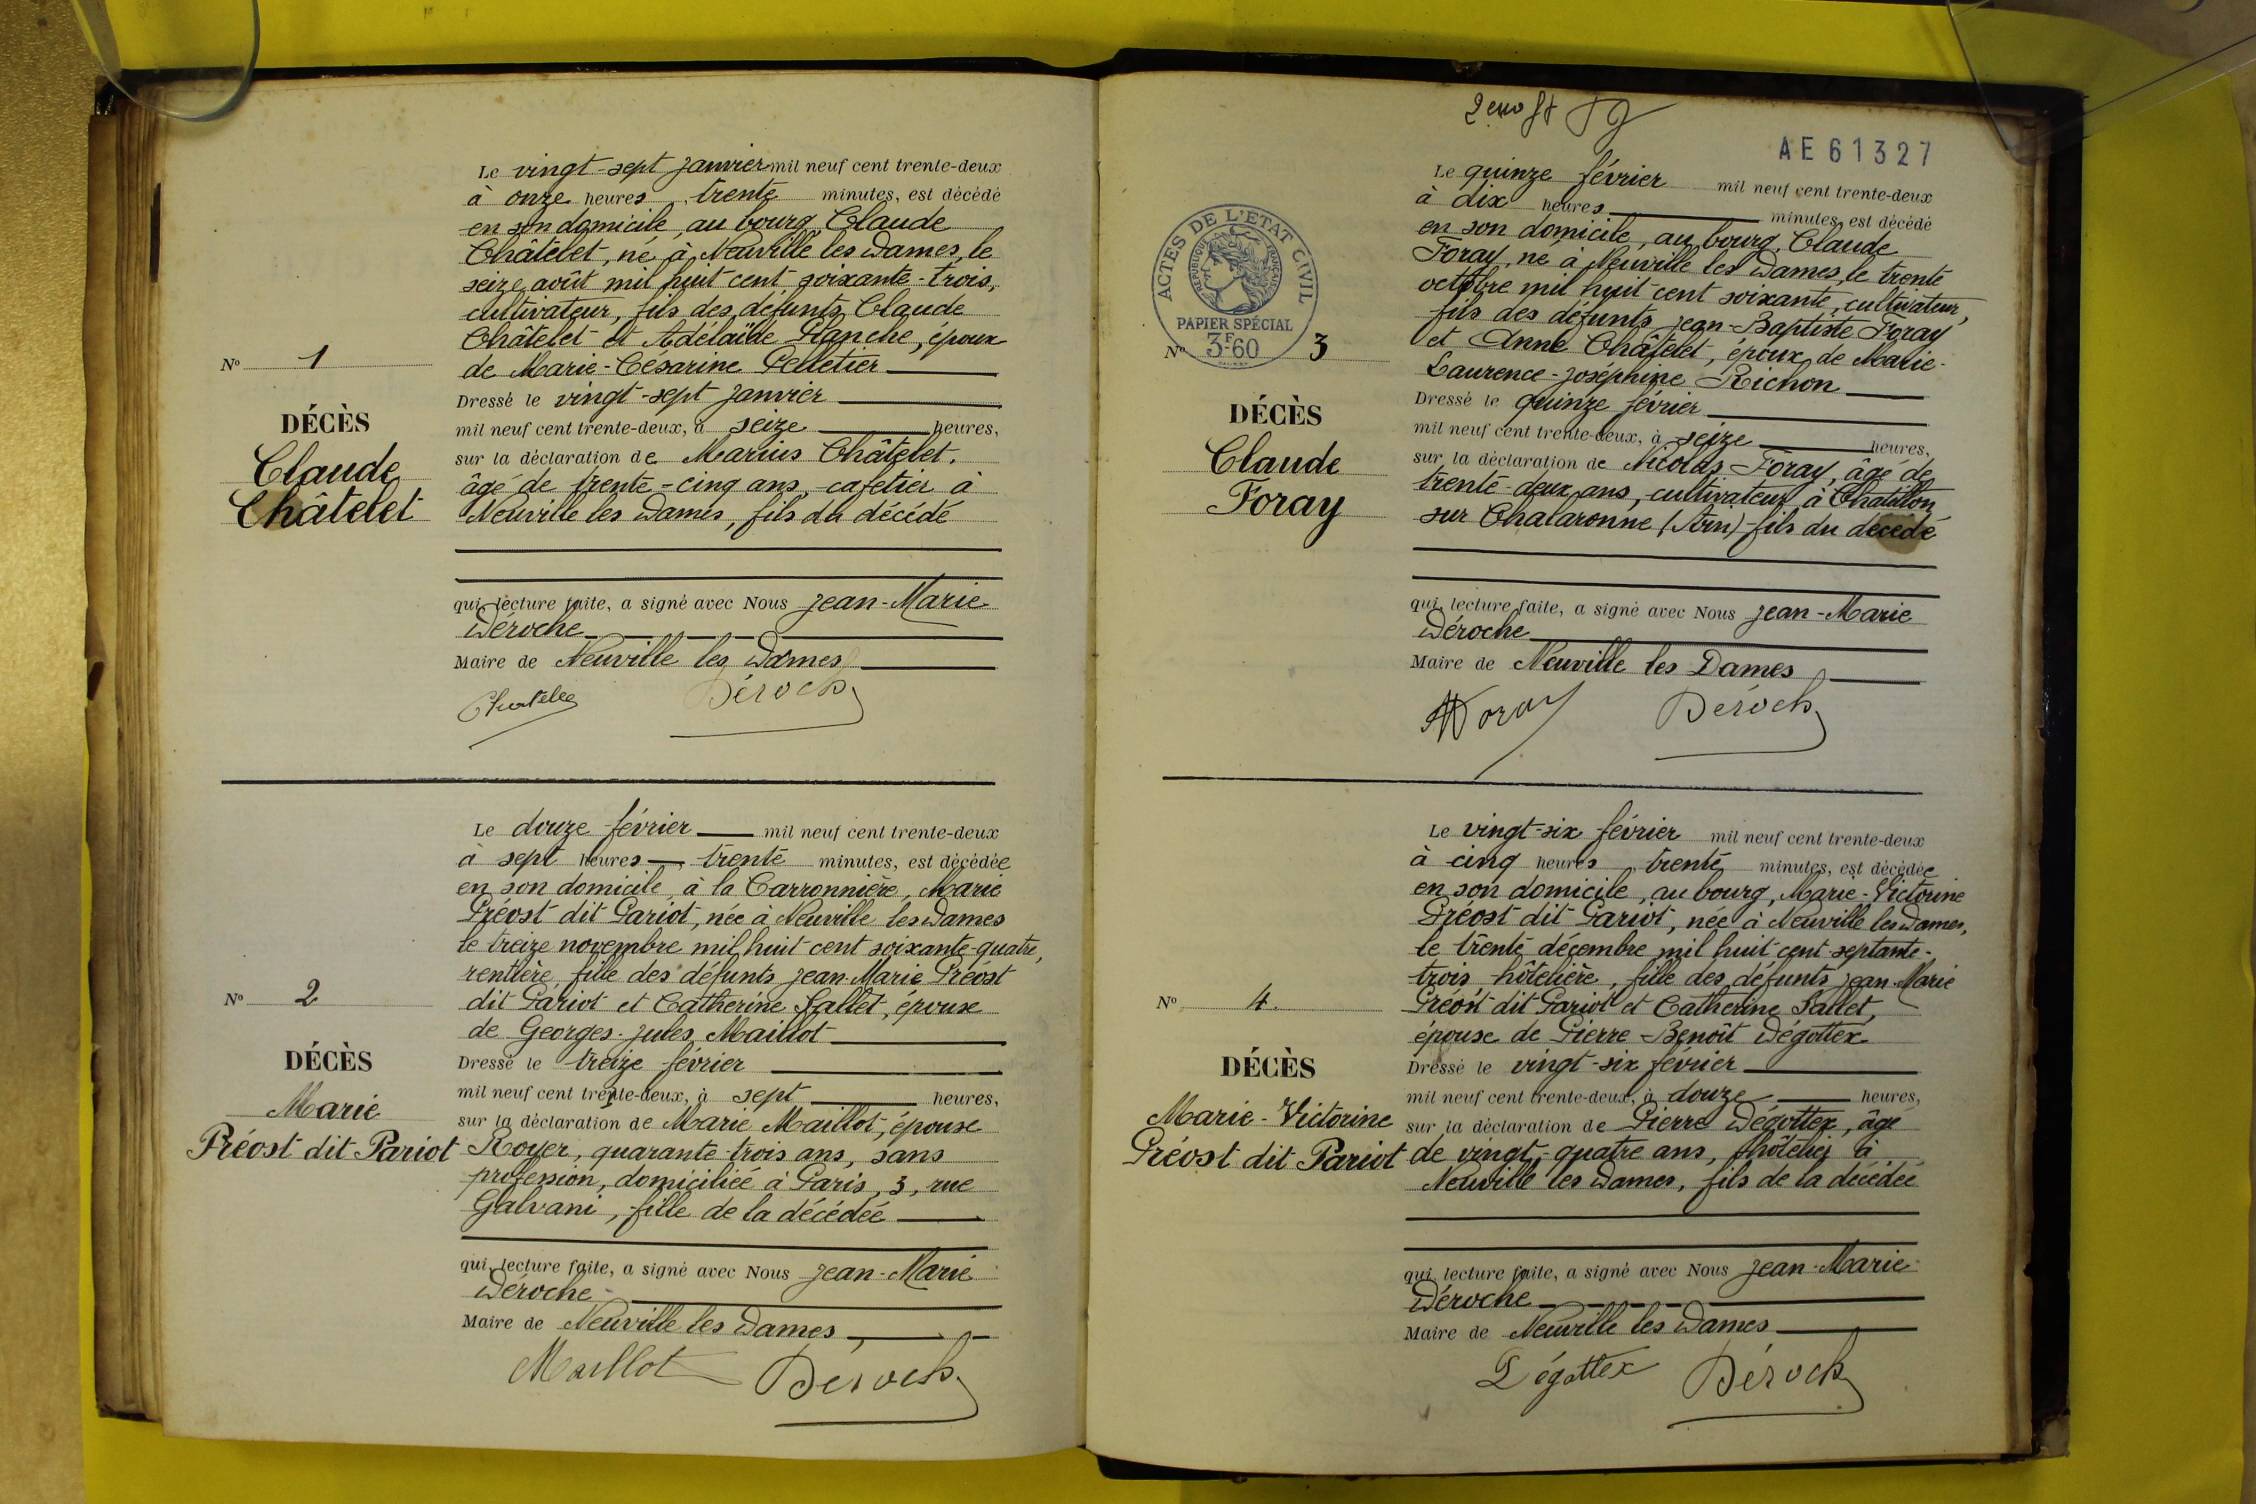 Le vingt-sept janvier mil neuf cent trente-deux
à onze heures, trente minutes, est décédé
en son domicile, au bourg, Claude
Châtelet, né à Neuville les Dames, le
seize août mil huit cent soixante-trois,
cultivateur, fils des défunts Claude
Châtelet et Adélaïde Planche, époux
de Marie-Césarine Pelletier
Dressé le vingt-sept janvier
mil neuf cent trente-deux, à seize heures,
sur la déclaration de Marius Châtelet,
âgé de trente-cinq ans, cafetier à
Neuville les Dames, fils du décédé
qui, lecture faite, a signé avec Nous Jean-Marie
Déroche
Maire de Neuville les Dames
Châtelet Déroche
N° 1
DÉCÈS
Claude
Châtelet
Le douze février mil neuf cent trente-deux
à sept heures, trente minutes, est décédée
en son domicile, à la Carronnière, Marie
Préost dit Pariot, née à Neuville les Dames
le treize novembre mil huit cent soixante-quatre,
rentière, fille des défunts Jean-Marie Préost
dit Pariot et Catherine Sallet, épouse
de Georges-Jules Maillot
Dressé le treize février
mil neuf cent trente-deux, à sept heures,
sur la déclaration de Marie Maillot, épouse
Royer, quarante-trois ans, sans
profession, domiciliée à Paris, 3, rue
Galvani, fille de la décédée
qui, lecture faite, a signé avec Nous Jean-Marie
Déroche
Maire de Neuville les Dames,
Maillot Déroche
N° 2
DÉCÈS
Marie
Préost dit Pariot
AE61327
ACTES DE L'ETAT CIVIL
REPUBLIQUE FRANÇAISE
PAPIER SPÉCIAL
3F60
Le quinze février mil neuf cent trente-deux
à dix heures minutes, est décédé
en son domicile, au bourg, Claude
Foray, né à Neuville les Dames, le trente
octobre mil huit cent soixante, cultivateur,
fils des défunts Jean-Baptiste Foray
et Anne Châtelet, époux de Marie-
Laurence-Joséphine Richon
Dressé le quinze février
mil neuf cent trente-deux, à seize heures,
sur la déclaration de Nicolas Foray, âgé de
trente-deux ans, cultivateur à Chatillon
sur Chalaronne (Ain) fils du décédé
qui, lecture faite, a signé avec Nous Jean-Marie
Déroche
Maire de Neuville les Dames
Foray Déroche
N° 3
DÉCÈS
Claude
Foray
Le vingt-six février mil neuf cent trente-deux
à cinq heures, trente minutes, est décédée
en son domicile, au bourg, Marie-Victorine
Préost dit Pariot, née à Neuville les Dames,
le trente décembre mil huit cent septante-
trois hôtelière, fille des défunts Jean-Marie
Préost dit Pariot et Catherine Sallet,
épouse de Pierre-Benoît Dégottex
Dressé le vingt-six février
mil neuf cent trente-deux, à douze heures,
sur la déclaration de Pierre Dégottex, âgé
de vingt-quatre ans, hôtelier à
Neuville les Dames, fils de la décédée
qui, lecture faite, a signé avec Nous Jean-Marie
Déroche
Maire de Neuville les Dames
Dégottex Déroche
N° 4.
DÉCÈS
Marie-Victorine
Préost dit Pariot